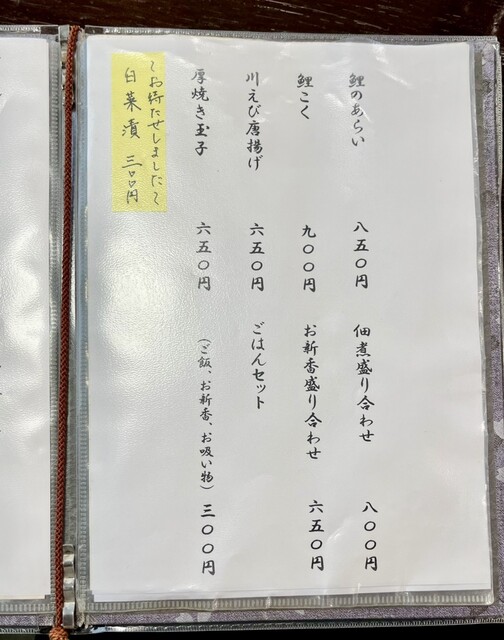 鯉のあらい 八五〇円
鯉こく 九〇〇円
川えび唐揚げ 六五〇円
厚焼き玉子 六五〇円
佃煮盛り合わせ 八〇〇円
お新香盛り合わせ 六五〇円
ごはんセット
(ご飯、お新香、お吸い物) 三〇〇円
〜お待たせしました〜
白菜漬 三〇〇円